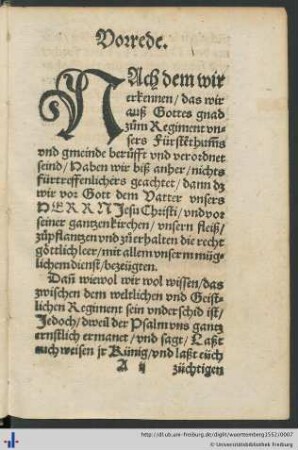 Vorrede.
NAch dem wir
erkennen / das wir
auß Gottes gnad
zům Regiment vn-
sers Fürstēthumͦs
vnd gmeinde berůfft vnd verordnet
seind / Haben wir biß anher / nichts
fürtreffenlichers geachtet / dann dz
wir vor Gott dem Vatter vnsers
HERRN Jesu Christi / vnd vor
seiner gantzen kirchen / vnsern fleiß /
zůpflantzen vnd zů erhalten die recht
göttlich leer / mit allem vnserm müg-
lichem dienst / bezeügten.
Dañ wiewol wir wol wissen / das
zwischen dem weltlichen vnd Geist-
lichen Regiment sein vnderschid ist /
Jedoch / dweil der Psalm vns gantz
ernstlich ermanet / vnd sagt / Laßt
euch weisen jr Künig / vnd laßt eüch
A ij züchtigen
http://dl.ub.uni-freiburg.de/diglit/wuerttemberg1552/0007
© Universitätsbibliothek Freiburg